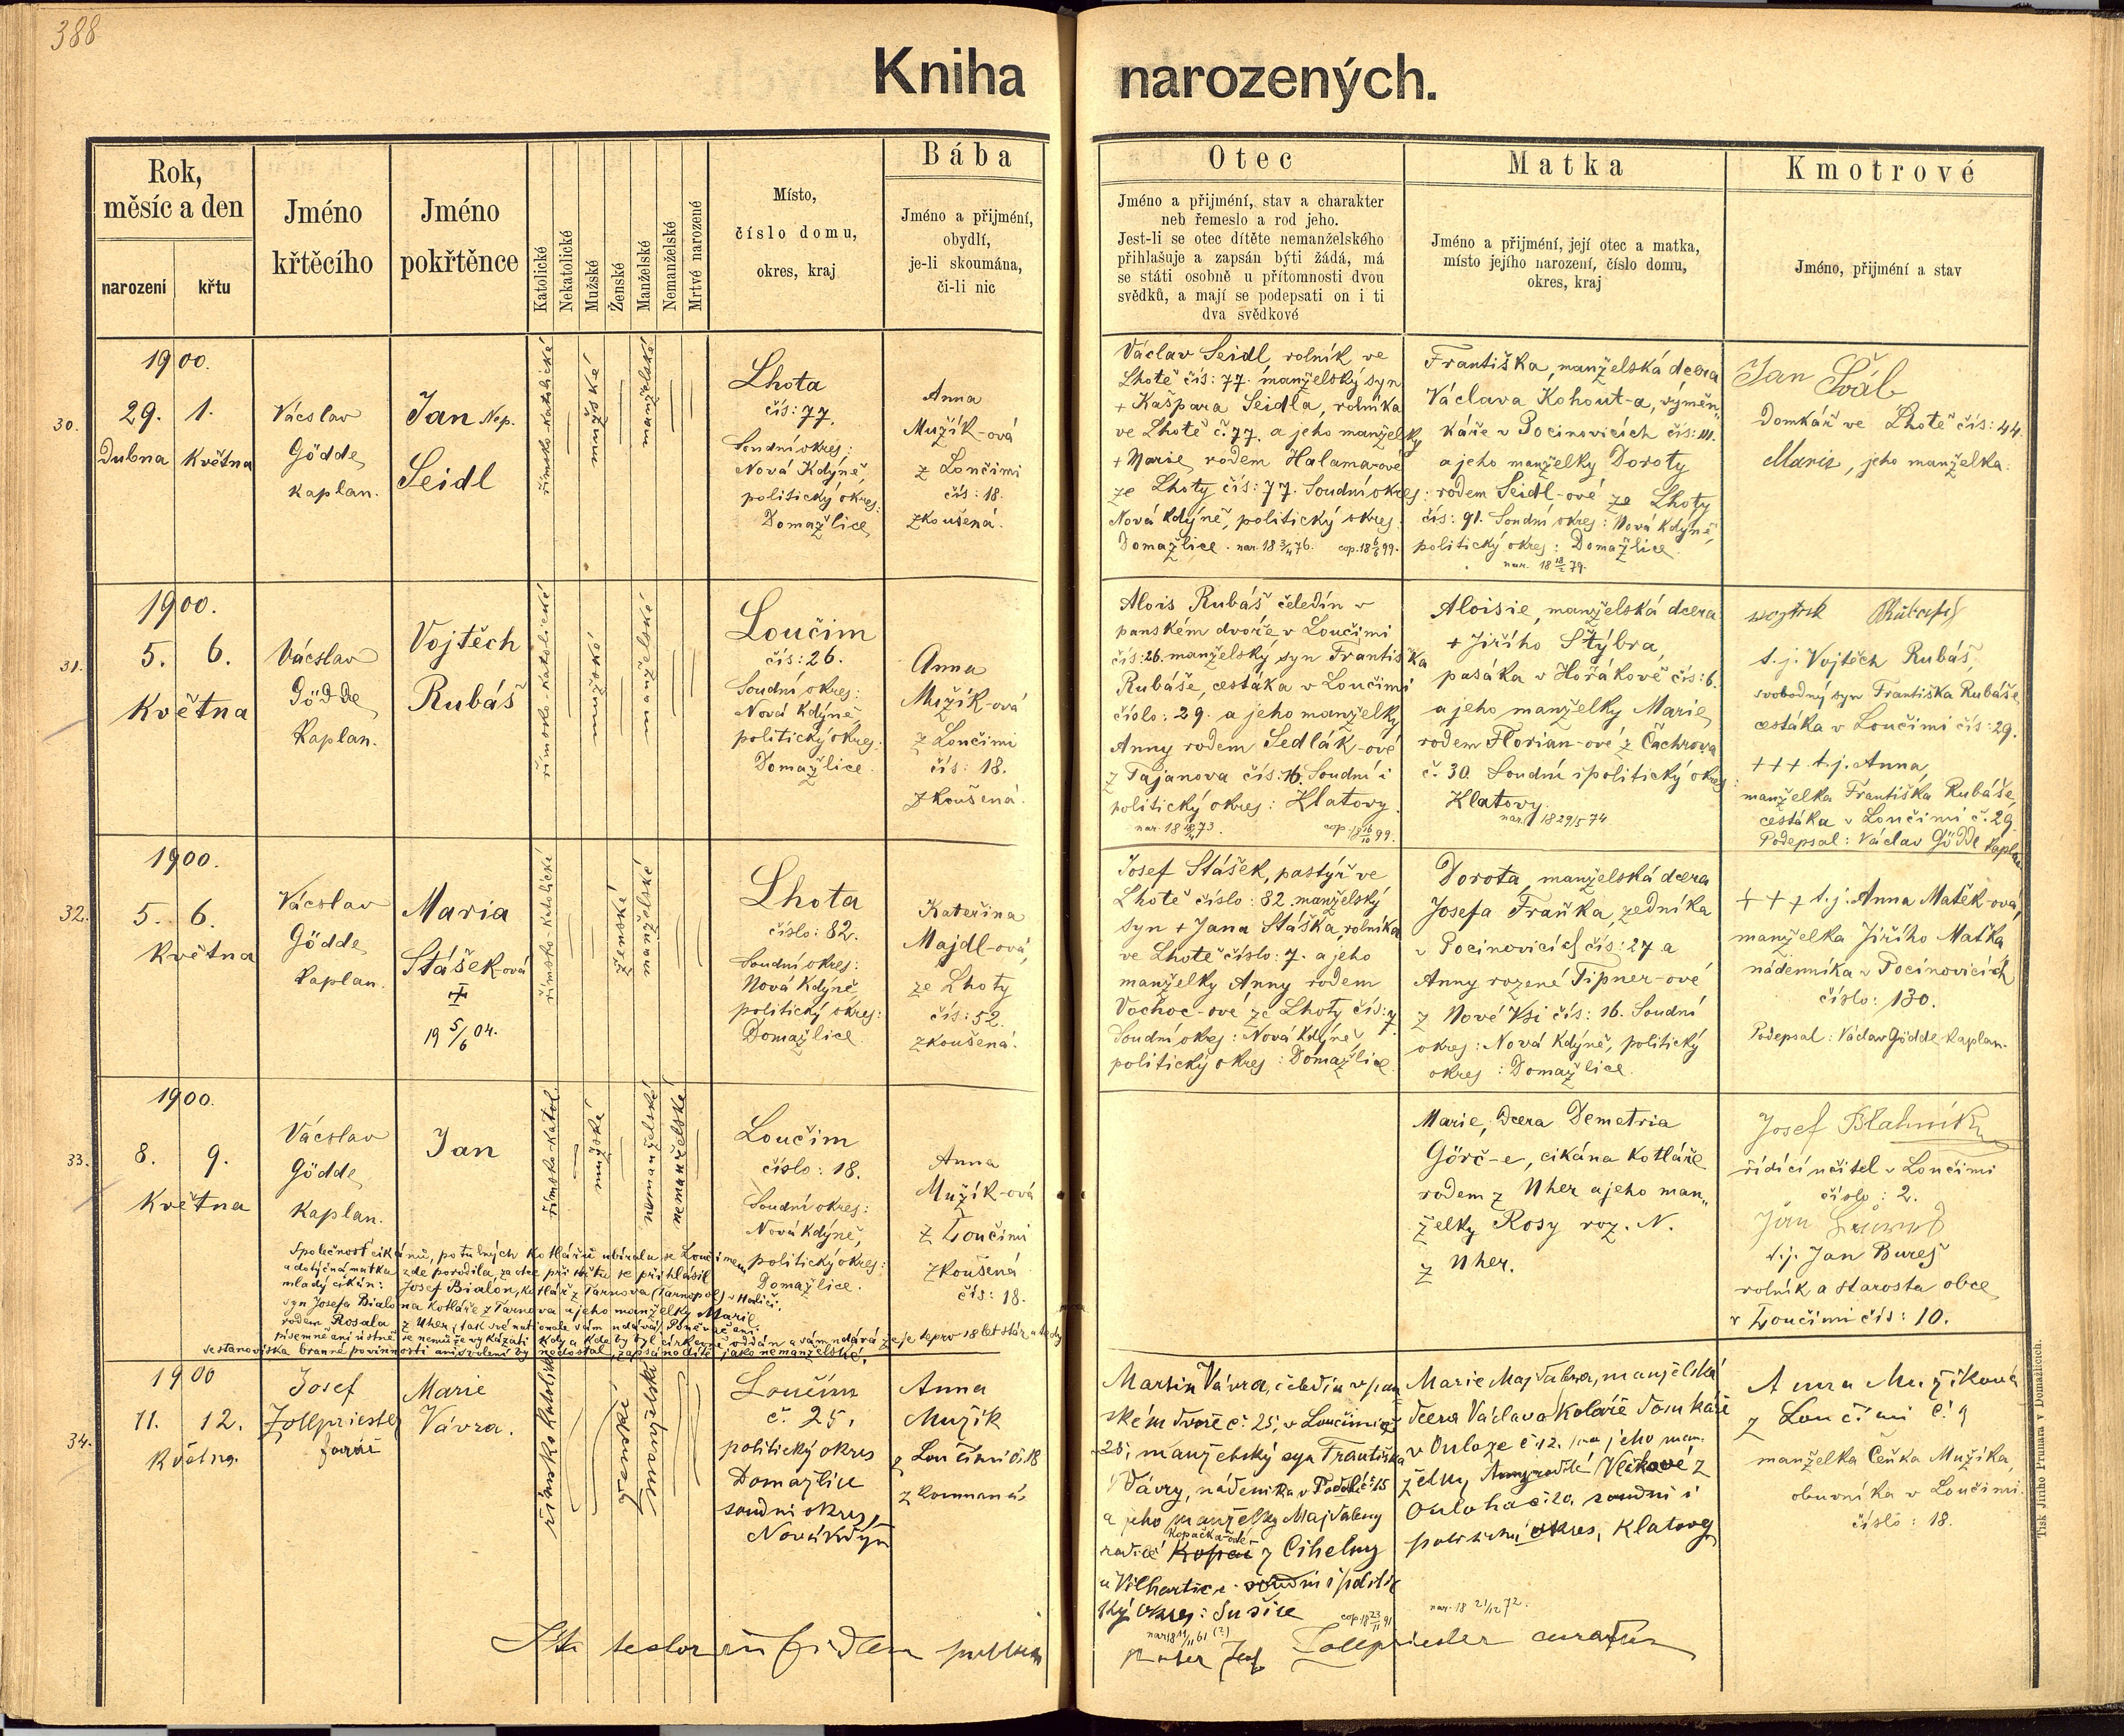 388
Kniha narozených.
Rok,
měsíc a den
narození
křtu
Jméno
křtěcího
Jméno
pokřtěnce
Katolické
Nekatolické
Mužské
Ženské
Manželské
Nemanželské
Mrtvě narozené
Místo,
číslo domu,
okres, kraj
Bába
Jméno a přijmění,
obydlí,
je-li skoumána,
či-li nic
Otec
Jméno a přijmění, stav a charakter
neb řemeslo a rod jeho.
Jest-li se otec dítěte nemanželského
přihlašuje a zapsán býti žádá, má
se státi osobně u přítomnosti dvou
svědků, a mají se podepsati on i ti
dva svědkové
Matka
Jméno a přijmění, její otec a matka,
místo jejího narození, číslo domu,
okres, kraj
Kmotrové
Jméno, přijmění a stav
30.
1900.
29. 1.
Dubna Května
Václav
Gödde,
kaplan.
Jan Nep.
Seidl
římsko-katolické
mužské
manželské
Lhota
čís: 77.
Soudní okres:
Nová Kdýně,
politický okres:
Domažlice
Anna
Mužík-ová
z Loučimi
čís: 18.
zkoušená.
Václav Seidl rolník ve
Lhotě čís: 77. manželský syn
+ Kašpara Seidla, rolníka
ve Lhotě č. 77. a jeho manželky
+ Marie, rodem Halamarové
ze Lhoty čís: 77. Soudní okres:
Nová Kdýně, politický okres:
Domažlice. nar. 18 3/4 76. cop. 18 6/6 99.
Františka, manželská dcera
Václava Kohout-a, výměn„
káře v Pocinovicích čís: 111.
a jeho manželky Doroty
rodem Seidl-ové ze Lhoty
čís: 91. Soudní okres: Nová Kdýně,
politický okres: Domažlice.
nar. 18 18/2 79.
Jan
Domkář ve Lhotě čís: 44.
Marie, jeho manželka.
31.
1900.
5. 6.
Května
Václav
Gödde,
Kaplan.
Vojtěch
Rubáš
římsko-katolické
mužské
manželské
Loučim
čís: 26.
Soudní okres:
Nová Kdýně,
politický okres:
Domažlice.
Anna
Mužík-ová
z Loučimi
čís: 18.
zkoušená.
Alois Rubáš čeledín v
panském dvoře v Loučimi
čís: 26. manželský syn Františka
Rubáše, cestáka v Loučimi
číslo: 29. a jeho manželky
Anny rodem Sedlák-ové
z Tajanova čís: 16. Soudní i
politický okres: Klatovy.
Aloisie, manželská dcera
+ Jiřího Štýbra,
pasáka v Hořákově čís: 6.
a jeho manželky Marie,
rodem Florian-ové z Čachrova
č. 30. Soudní i politický okres:
Klatovy.
nar. 18 29/5 74
t. j. Vojtěch Rubáš,
svobodný syn Františka Rubáše,
cestáka v Loučimi čís: 29.
+++ t. j. Anna,
manželka Františka Rubáše,
cestáka v Loučimi č. 29
Podepsal: Václav Gödde kaplan
32.
1900.
5. 6.
Května
Václav
Gödde,
kaplan.
Maria
Stášek-ová
19 5/6 04.
římsko-katolické
ženské
manželské
Lhota
číslo: 82.
Soudní okres:
Nová Kdýně,
politický okres:
Domažlice.
Kateřina
Majdl-ová,
ze Lhoty
čís: 52.
zkoušená.
Josef Stášek, pastýř ve
Lhotě číslo: 82. manželský
syn + Jana Stáška, rolníka
ve Lhotě číslo: 7. a jeho
manželky Anny rodem
Vochoc-ové ze Lhoty čís: 7
Soudní okres: Nová Kdýně,
politický okres: Domažlice.
Dorota, manželská dcera
Josefa Fraňka, zedníka
v Pocinovicích čís: 27 a
Anny rozené Tipner-ové
z Nové Vsi čís: 16. Soudní
okres: Nová Kdýně, politický
okres: Domažlice.
+ + + t. j. Anna Matěk-ová,
manželka Jiřího Maťka
nádenníka v Pocinovicích
číslo: 130.
Podepsal: Václav Gödde Kaplan.
33.
1900.
8. 9.
Května
Václav
Gödde,
Kaplan.
Jan
římsko-katol.
mužské
nemanželské
nemanželské
Loučim
číslo: 18.
Soudní okres:
Nová Kdýně,
politický okres:
Domažlice.
Anna
Mužík-ová
z Loučimi
zkoušená
čís: 18.
Marie, dcera Demetria
Görč-e, cikána kotláře
rodem z Uher a jeho man„
želky Rosy roz. N.
z Uher.
Josef Blahník
řídící učitel v Loučimi
číslo: 2.
t. j. Jan Bureš
rolník a starosta obce
v Loučimi čís: 10.
Společnost cikánů, potulných kotlářů ubírala se Loučimem
a dotyčná matka zde porodila, za otce při křtu se přihlásil
mladý cikán: Josef Bialon, kotlář z Tarnova (Tarnopole) v Haliči,
syn Josefa Bialona kotláře z Tarnova a jeho manželky Marie
rodem Rosala z Uher, tak své nationale sám udává. Poněvadž ani
písemně ani ústně se nemůže vykázati kdy a kde by byl církevně oddán a sám udává že je teprv 18 let stár a tedy
se stanoviska branné povinnosti ani svolení by nedostal, zapsáno dítě jako nemanželské.
34.
1900
11. 12.
Května
Josef
Zollpriester
farář
Marie
Vávra.
římsko katolické
ženské
manželské
Loučim
č. 25,
politický okres
Domažlice
soudní okres,
Nová Kdýn
Anna
Mužík
z Loučimi č. 18
zkoumaná
Martin Vávra, čeledín v pan
ském dvoře č. 25, v Loučimi
25, manželský syn Františka
Vávry, nádeníka v Podolí č. 15
a jeho manželky Majdaleny
Kopačka-ødé
rodilé Kopač z Cihelny
u Vilhartic. soudní i politic
ký okres: Sušice
cop. 18 23/11 91
Marie Majdalena, manželská
dcera Václava Koláře domkáře
v Ouloze č. 12. a jeho man-
želky, Anny rodilé Vlčkové z
Ouloha č. 20. soudní i
politický okres, Klatovy
nar. 18 21/12 72.
Anna Mužíková
z Loučimi č. 9
manželka Čeňka Mužíka,
obuvníka v Loučimi.
číslo: 18.
Zollpriester
Tisk Jiřího Prunara v Domažlicích.